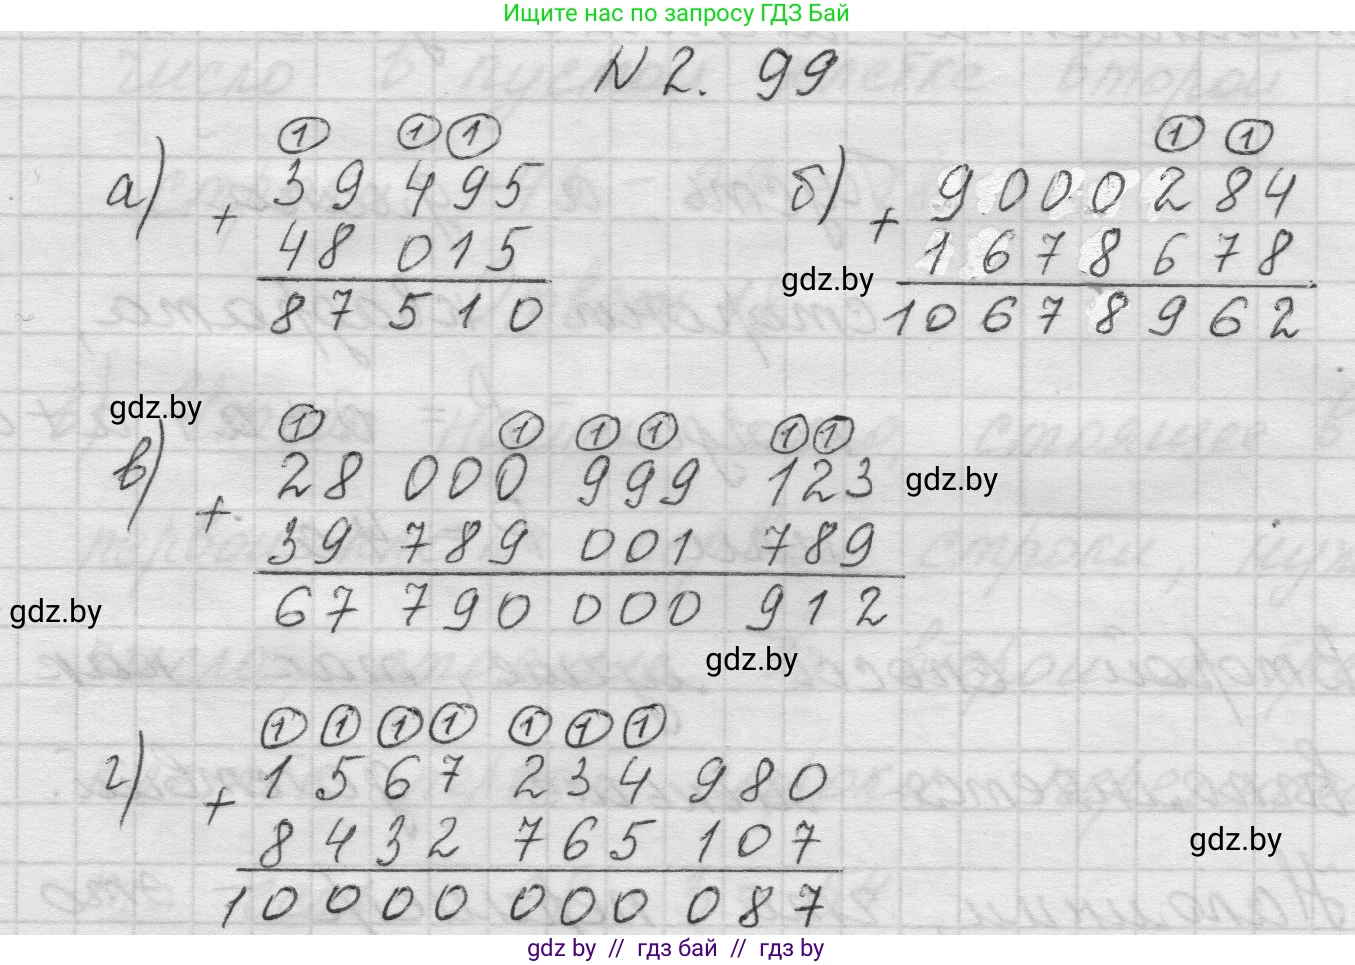 Ищите нас по запросу ГДЗ Бай
N 2. 99
а) ① ① ①
+ 39 495
48 015
87 510
б) ① ①
+ 9000284
1678678
10678962
gdz.by
gdz.by
в) ① ① ① ① ① ①
+ 28 000 999 123
39 789 001 789
67 790 000 912
gdz.by
gdz.by
gdz.by
г) ① ① ① ① ① ① ①
+ 1567 234 980
8432 765 107
10000 000 087
gdz.by
gdz.by // гдз бай // гдз by